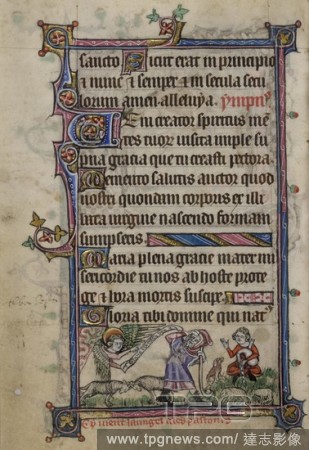 sancto Sicut erat in principio
& nunc & semper & in secula secu
lorum amen alleluya. ympnus
Veni creator spiritus me
tes tuor visita imple su
pna gracia que tu creasti pectora
Memento salutis auctor quod
nostri quondam corporis ex illi
bata virgine nascendo formam
sumpseris
Maria plena gracie mater mi
sericordie tu nos ab hoste prote
ge & hora mortis suscipe
Gloria tibi domine qui nat9
TPG
www.tpgnews.com/ 達志影像